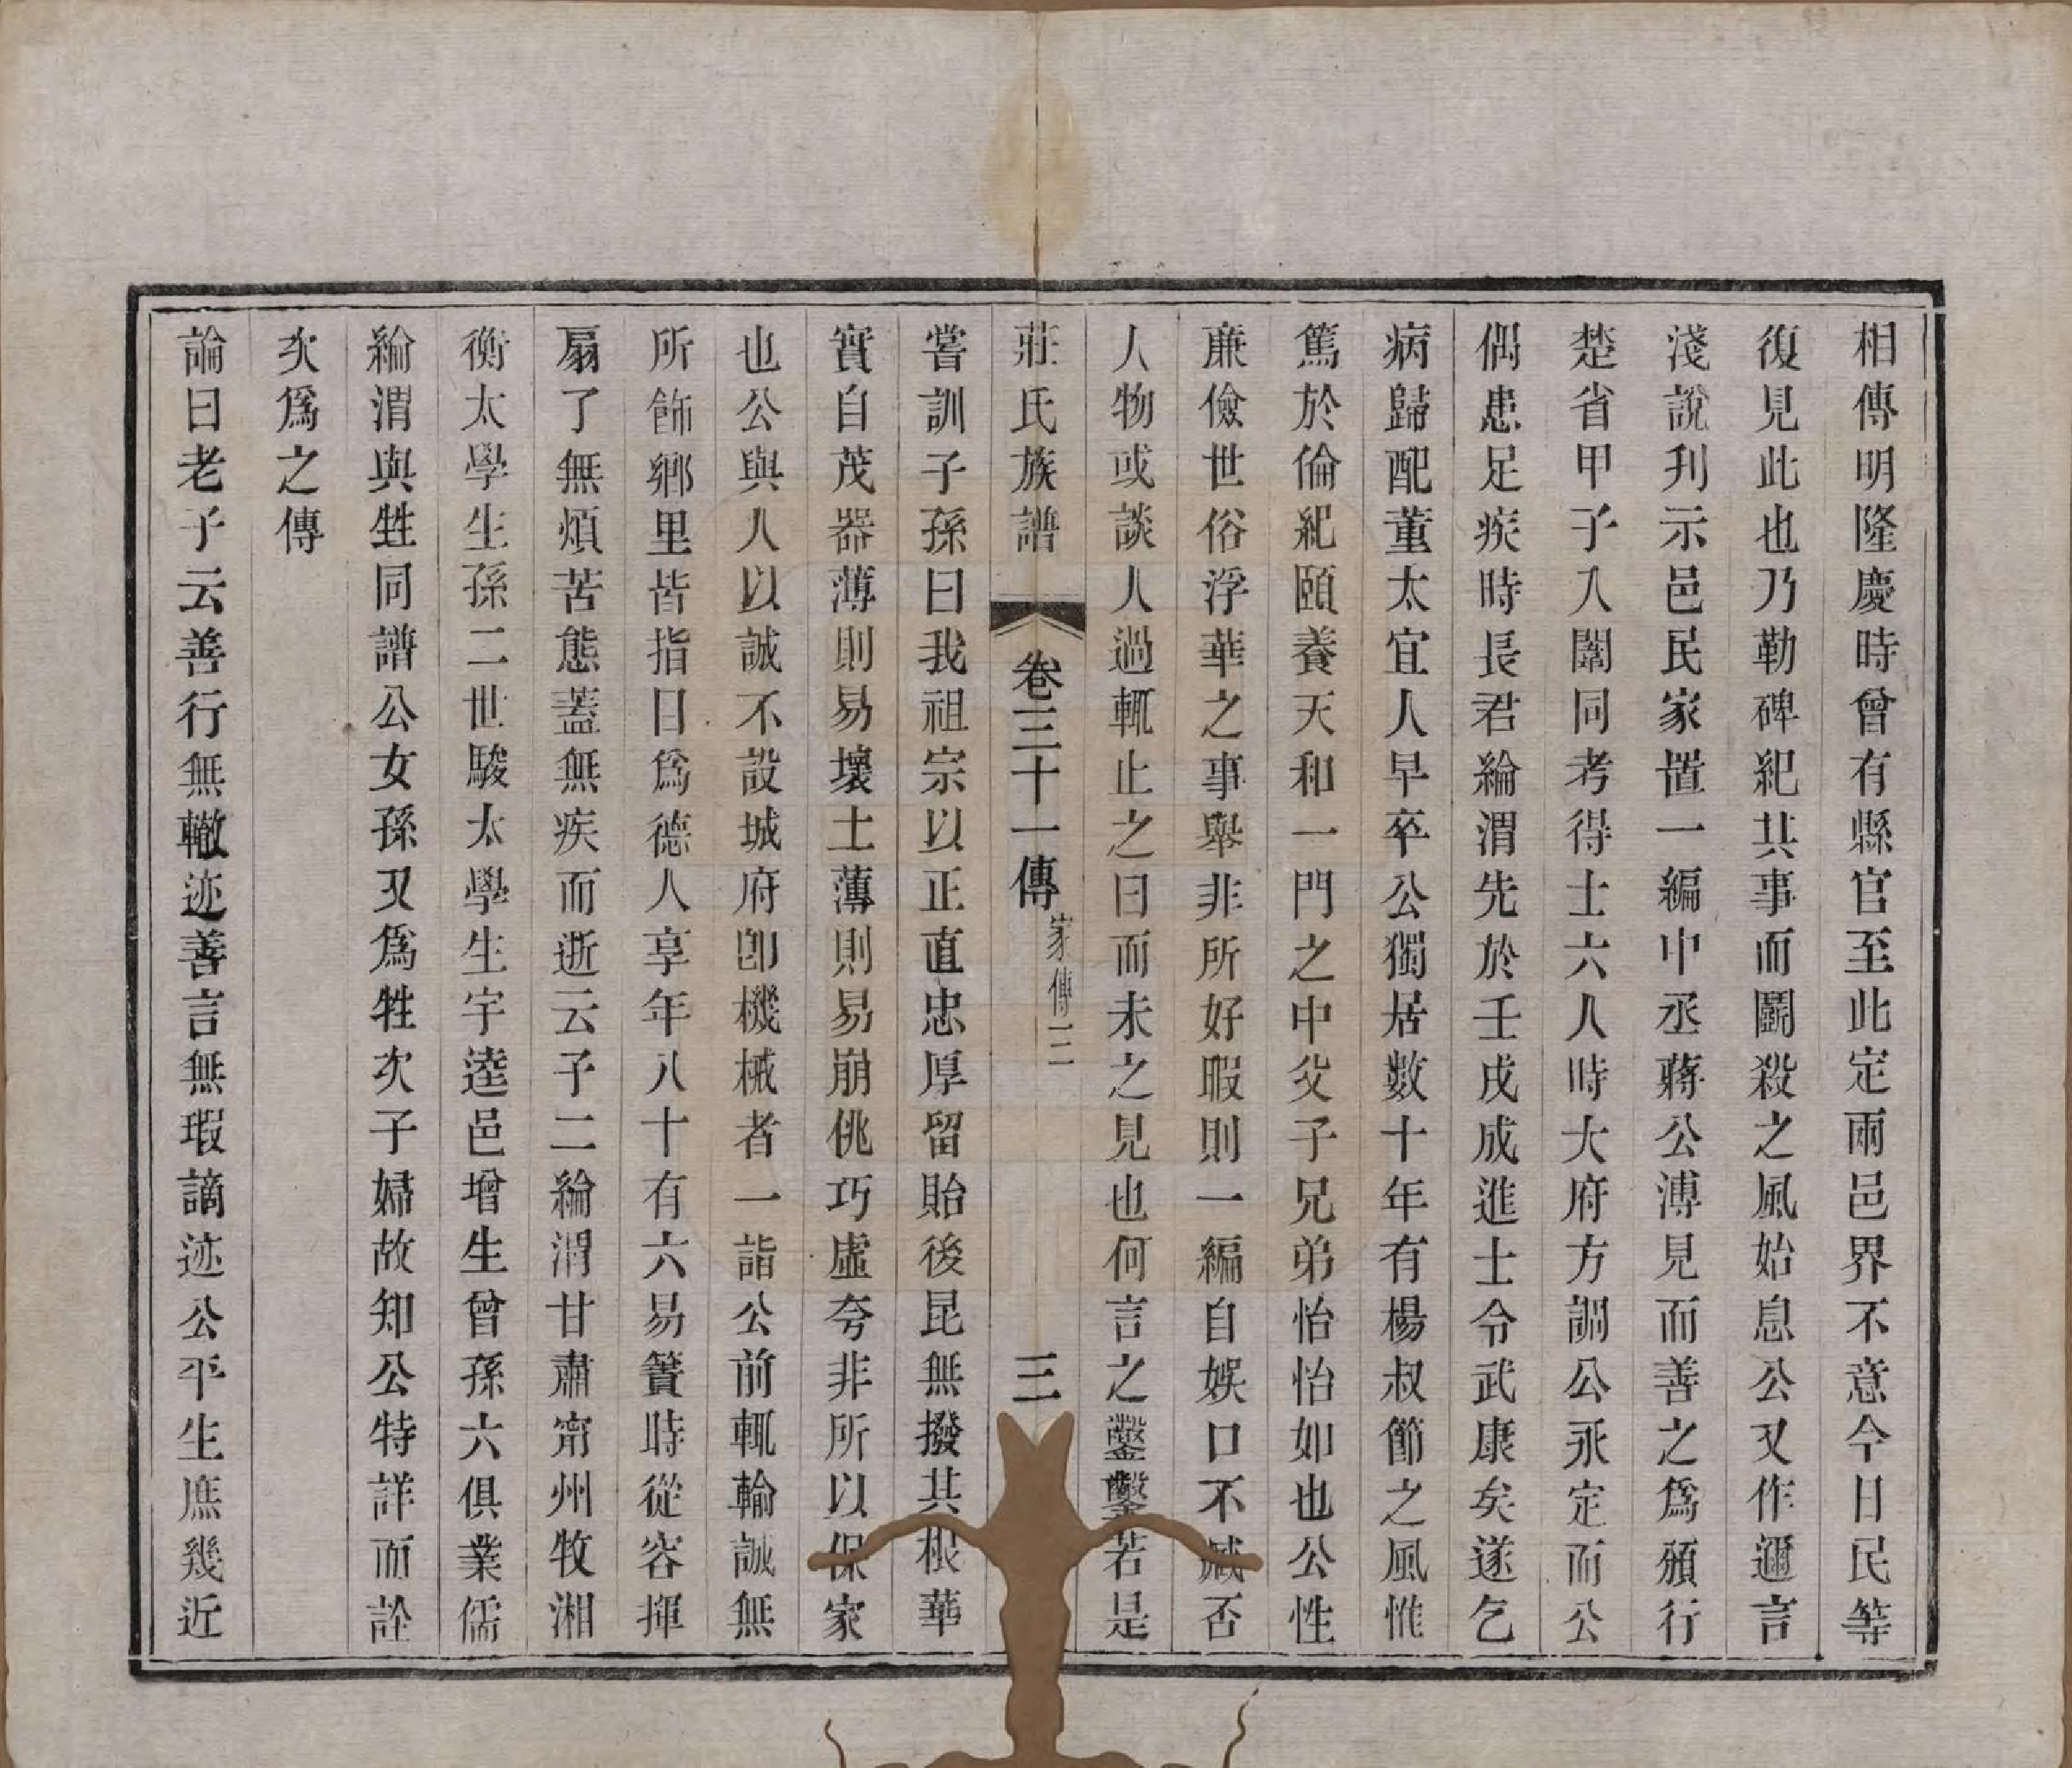 相傳明隆慶時曾有縣官至此定兩邑界不意今日民等
復見此也乃勒碑紀其事而鬭殺之風始息公又作邇言
淺說刋示邑民家置一編中丞蔣公溥見而善之爲頒行
楚省甲子入闈同考得士六人時大府方調公永定而公
偶患足疾時長君綸渭先於壬戌成進士令武康矣遂乞
病歸配董太宜人早卒公獨居數十年有楊叔節之風惟
篤於倫紀頤養天和一門之中父子兄弟怡怡如也公性
廉儉世俗浮華之事舉非所好暇則一編自娛口不臧否
人物或談人過輒止之曰而未之見也何言之鑿鑿若是
莊氏族譜 卷三十一傳 家傳三 三
嘗訓子孫曰我祖宗以正直忠厚留貽後昆無撥其根華
實自茂器薄則易壞土薄則易崩佻巧虛夸非所以保家
也公與人以誠不設城府卽機械者一詣公前輒輸誠無
所飾鄉里皆指目爲德人享年八十有六易簀時從容揮
扇了無煩苦態蓋無疾而逝云子二綸渭甘肅甯州牧湘
衡太學生孫二世駿太學生宇逵邑增生曾孫六俱業儒
綸渭與甡同譜公女孫又爲甡次子婦故知公特詳而詮
次爲之傳
論曰老子云善行無轍迹善言無瑕謫迹公平生庶幾近